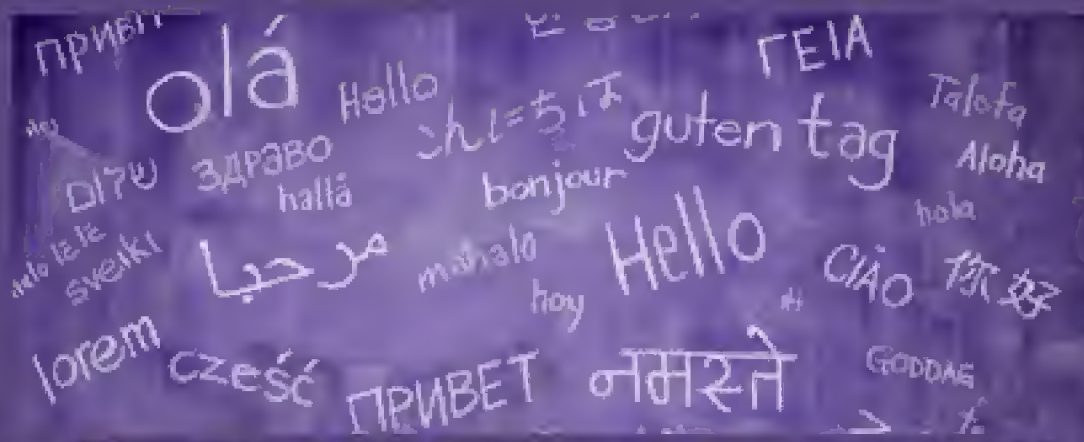 ПРИВЕТ
olá
Hello
ΓΕΙΑ
Talofa
guten tag
Aloha
שלום
ЗДРАВО
hallå
bonjour
hola
sveiki
مرحبا
mahalo
Hello
CIÃO
你好
hoy
lorem
cześć
ПРИВЕТ
नमस्ते
GODDAG